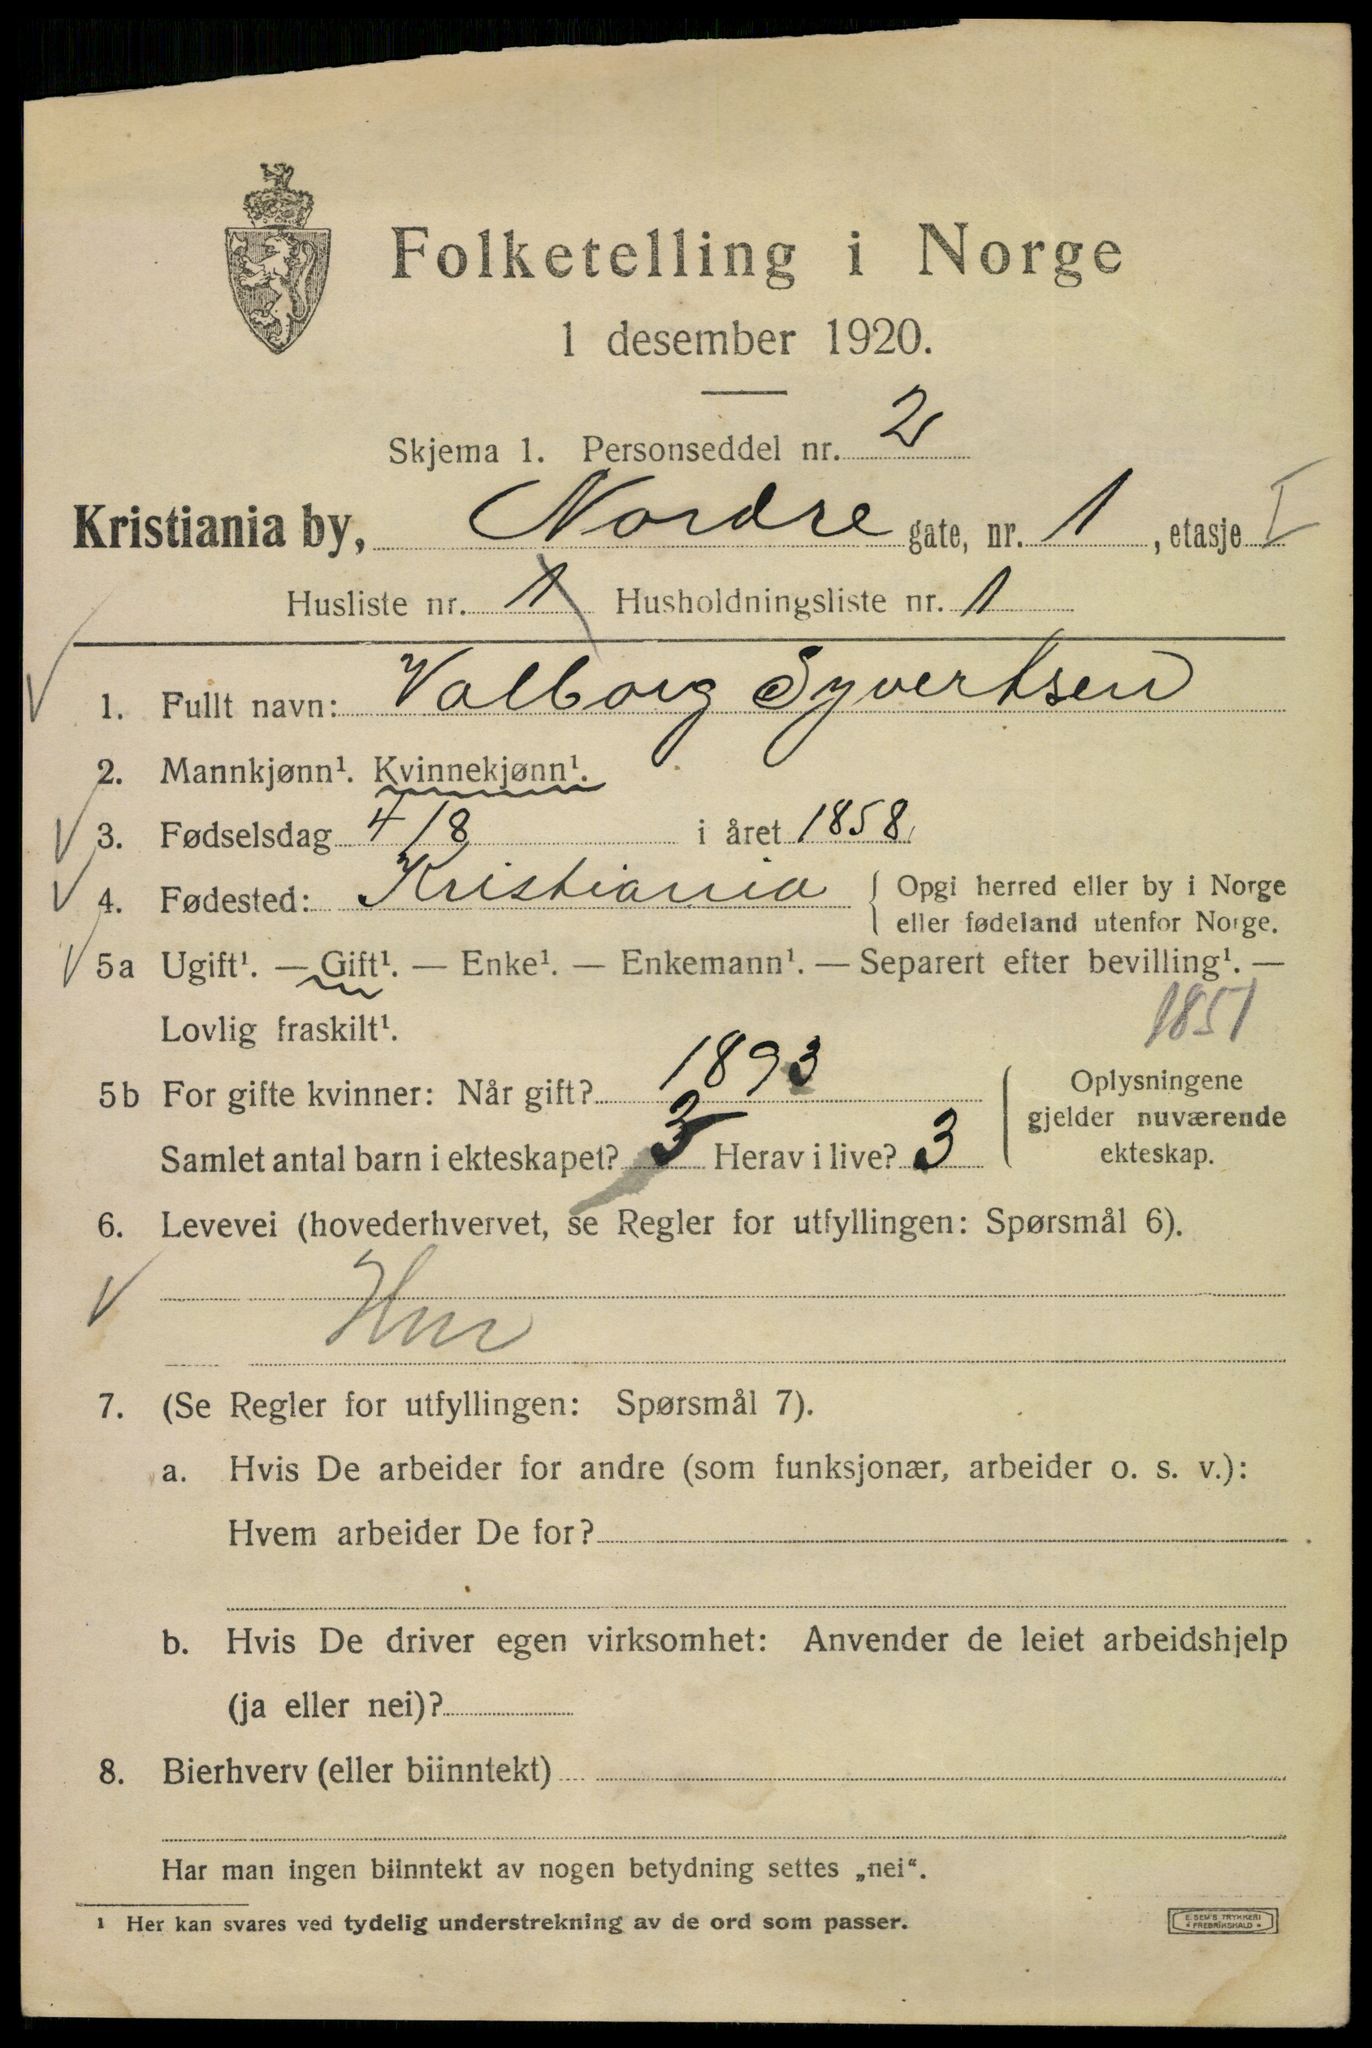 Folketelling i Norge
1 desember 1920.
Skjema 1. Personseddel nr. 2
Kristiania by, Nordre gate, nr. 1, etasje I
Husliste nr. 1 Husholdningsliste nr. 1
1. Fullt navn: Valborg Syvertsen
2. Mannkjønn¹. Kvinnekjønn¹.
3. Fødselsdag 4/8 i året 1858
4. Fødested: Kristiania { Opgi herred eller by i Norge
eller fødeland utenfor Norge.
5a Ugift¹. — Gift¹. — Enke¹. — Enkemann¹. — Separert efter bevilling¹. —
Lovlig fraskilt¹. 1851
5b For gifte kvinner: Når gift? 1893
Samlet antal barn i ekteskapet? 3 Herav i live? 3
Oplysningene
gjelder nuværende
ekteskap.
6. Levevei (hovederhvervet, se Regler for utfyllingen: Spørsmål 6).
Hm
7. (Se Regler for utfyllingen: Spørsmål 7).
a. Hvis De arbeider for andre (som funksjonær, arbeider o. s. v.):
Hvem arbeider De for?
b. Hvis De driver egen virksomhet: Anvender de leiet arbeidshjelp
(ja eller nei)?
8. Bierhverv (eller biinntekt)
Har man ingen biinntekt av nogen betydning settes „nei“.
¹ Her kan svares ved tydelig understrekning av de ord som passer.
E. SEM'S TRYKKERI
* FREDRIKSHALD *